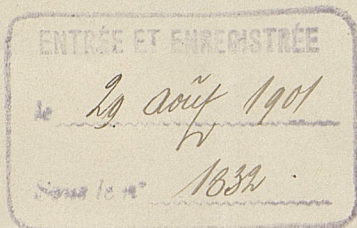 ENTRÉE ET ENREGISTRÉE
le 29 août 1901
Sous le n° 1832.